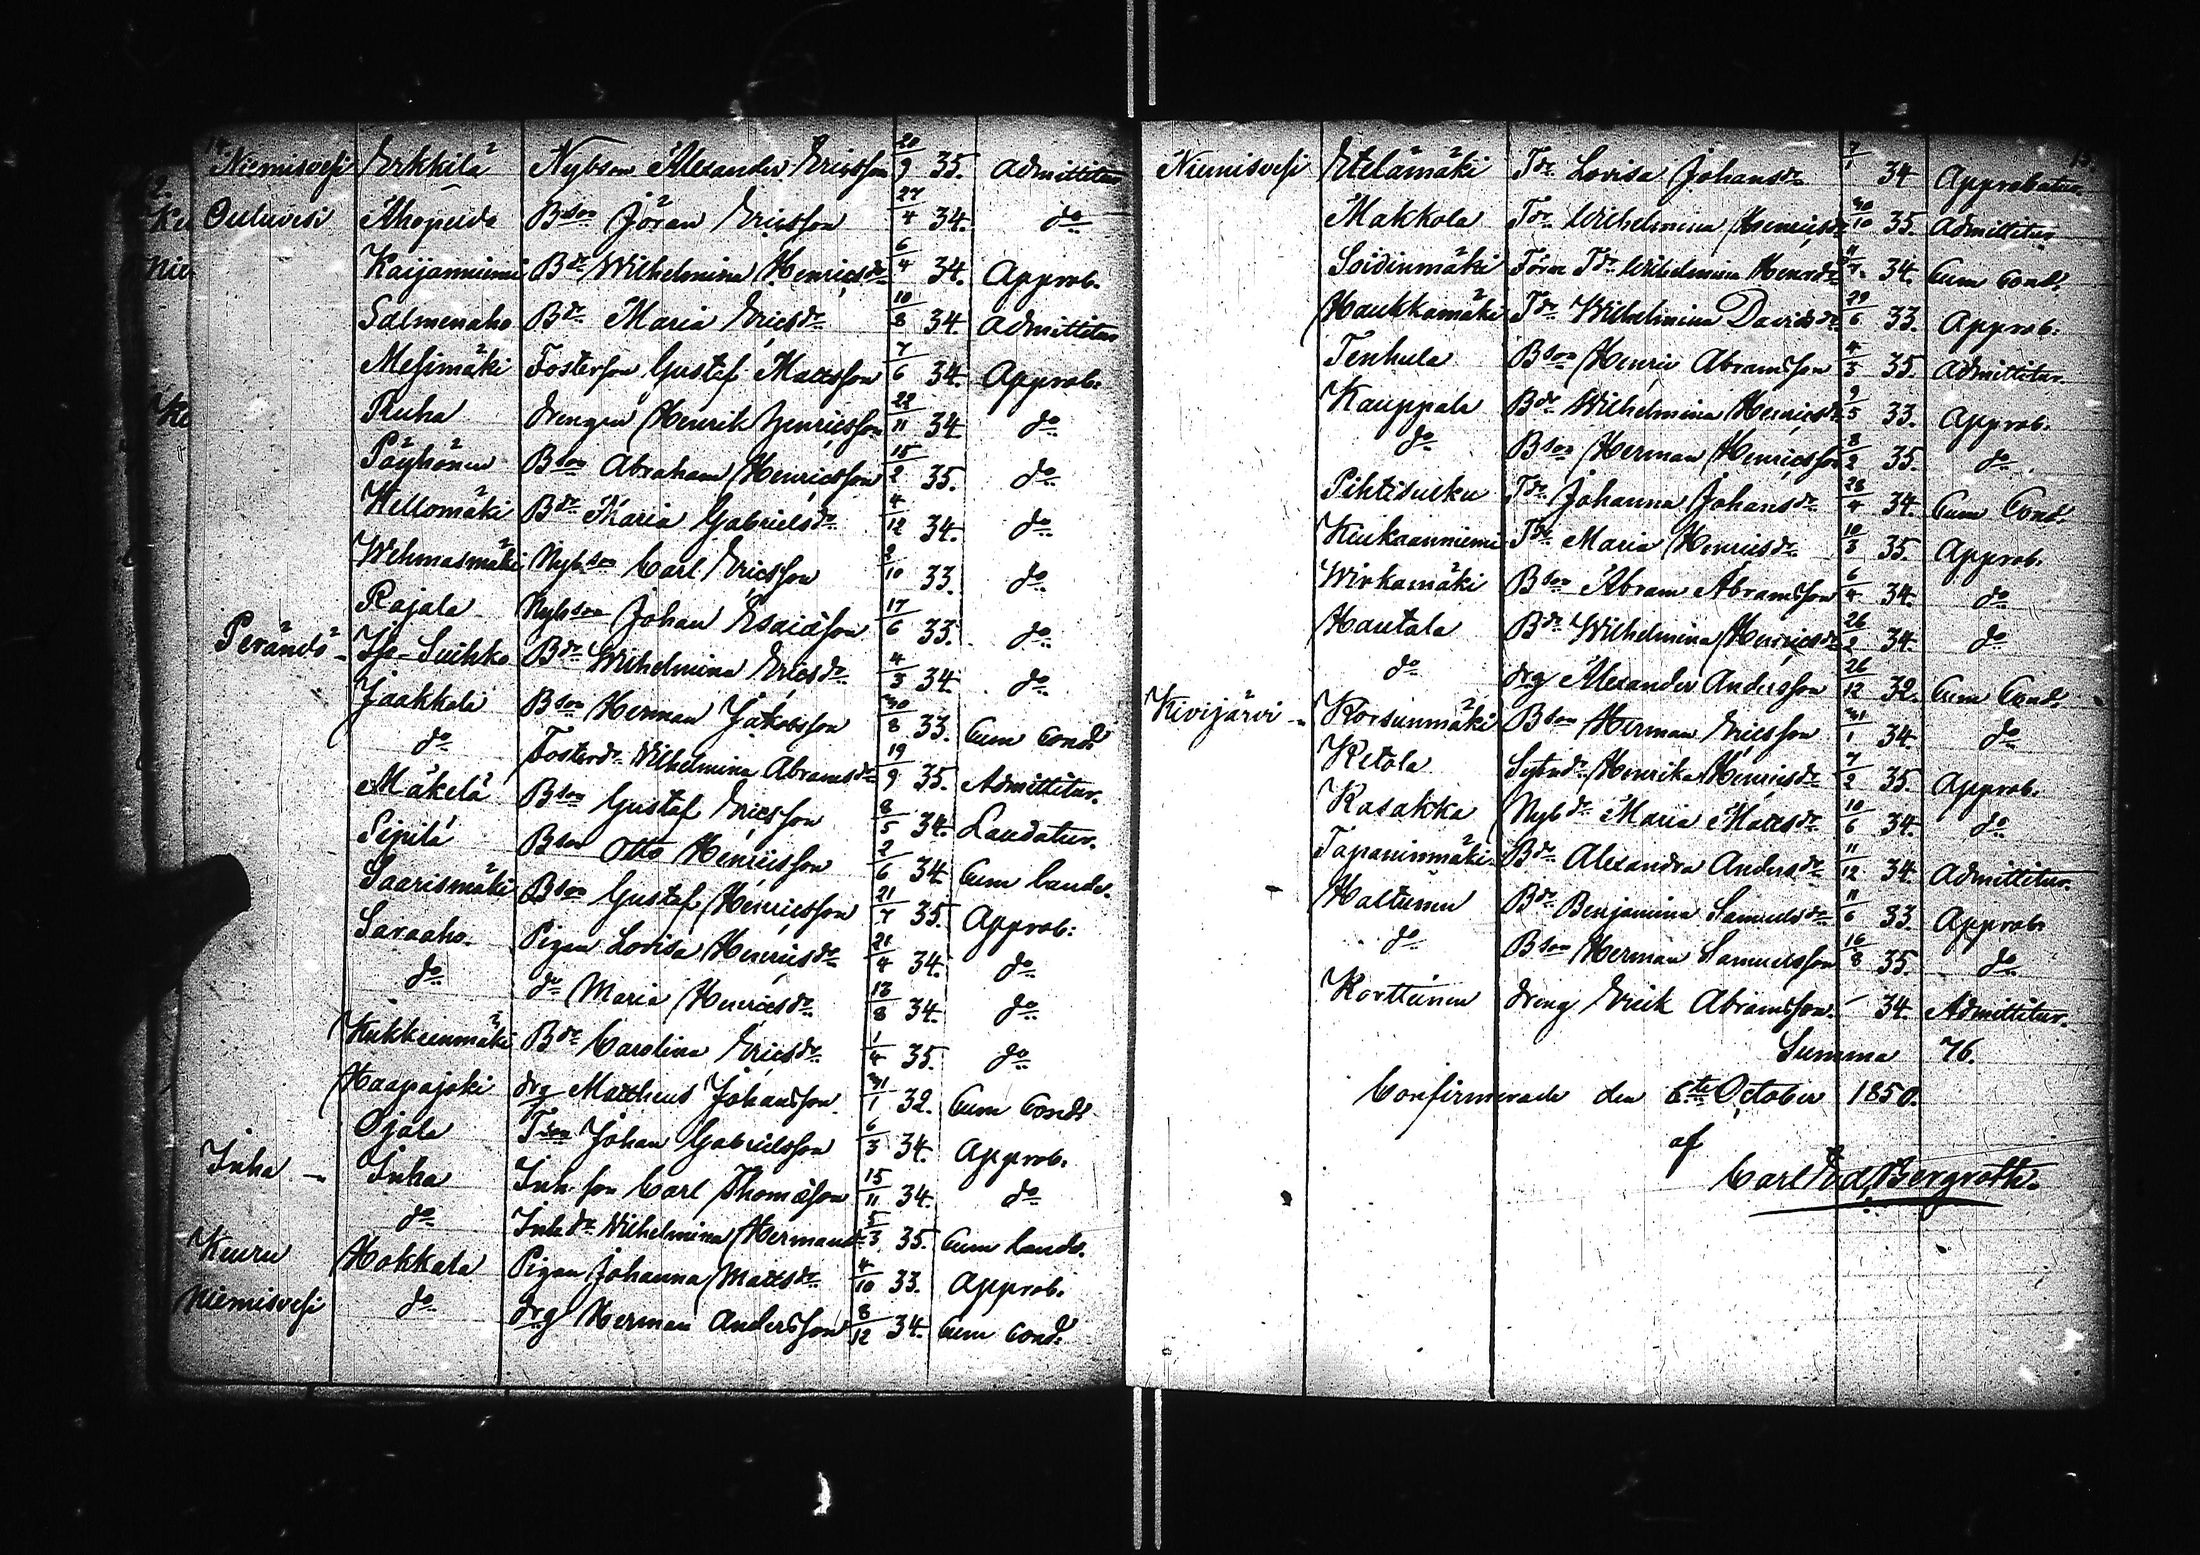 14.
Niemisvesi Erkkilä Nybson Alexander Ericsson 20/9 35. Admittitur
Ouluvesi Ahopeldo Bson Jöran Ericsson 27/4 34. do
Kaijanniemi Bdr Wilhelmina Henricsdr 6/4 34. Approb.
Salmenaho Bdr Maria Ericsdr 10/8 34. Admittitur
Mesimäki Fosterson Gustaf Mattsson 7/6 34. Approb.
Pruha drengen Henrik Henricsson 22/11 34. do
Päyhönen Bson Abraham Henricsson 15/2 35. do
Hellomäki Bdr Maria Gabrielsdr 4/12 34. do
Wehmasmäki Nybson Carl Ericsson 2/10 33. do
Rajala Nybson Johan Esaiasson 17/6 33. do
Perändö Iso-Suihko Bdr Wilhelmina Ericsdr 4/3 34. do
Jaakkola Bson Herman Jakobsson 30/8 33. Cum Cond.
do Fosterdr Wilhelmina Abramsdr 19/9 35. Admittitur.
Mäkelä Bson Gustaf Ericsson 8/5 34. Laudatur.
Sipilä Bson Otto Henricsson 2/6 34. Cum laude.
Saarismäki Bson Gustaf Henricsson 21/7 35. Approb:
Saraaho Pigan Lovisa Henricsdr 21/4 34. do
do do Maria Henricsdr 13/8 34. do
Kukkeinmäki Bdr Carolina Ericsdr 1/4 35. do
Haapajoki drg Mattheus Johansson 31/1 32. Cum Cond.
Ojala Tson Johan Gabrielsson 6/3 34. Approb.
Inha Inha Inh. son Carl Thomasson 15/11 34. do
do Inhdr Wilhelmina Hermansdr 5/3 35. Cum laude.
Keuru Hokkala Pigan Johanna Mattsdr 4/10 33. Approb.
Niemisvesi do drg Herman Andersson 8/12 34. Cum Cond.
15.
Niemisvesi Etelämäki Tdr Lovisa Johansdr 7/1 34 Approbatur
Makkola Tdr Wilhelmina Henricsdr 30/10 35. Admittitur.
Soidinmäki Förre Tdr Wilhelmina Henrsdr 11/7 34. Cum Cond.
Haukkamäki Tdr Wilhelmina Davidsdr 29/6 33. Approb.
Tenhula Bson Henric Abramsson 4/3 35. Admittitur.
Kauppala Bdr Wilhelmina Henricsdr 9/5 33. Approb.
do Bson Herman Henricsson 8/2 35. do
Pihtisulku Tdr Johanna Johansdr 28/4 34. Cum Cond.
Kiukaanniemi Tdr Maria Henricsdr 10/3 35. Approb.
Wirkamäki Bson Abram Abramsson 6/4 34. do
Hautala Bdr Wilhelmina Henricsdr 26/2 34. do
do drg Alexander Andersson 26/12 32. Cum Cond.
Kivijärvi Korsunmäki Bson Herman Ericsson 31/1 34. do
Ketola Sytndr Henrika Henricsdr 7/2 35. Approb.
Kasakka Nybdr Maria Mattsdr 10/6 34. do
Tapaninmäki Bdr Alexandra Andersdr 11/12 34. Admittitur.
Haltunen Bdr Benjamina Samuelsdr 11/6 33. Approb.
do Bson Herman Samuelsson 16/8 35. do
Korttinen dreng Erick Abramsson. - 34. Admittitur.
Summa 76.
Confirmerade den 6te October 1850.
af
Carl Ed. Bergroth.